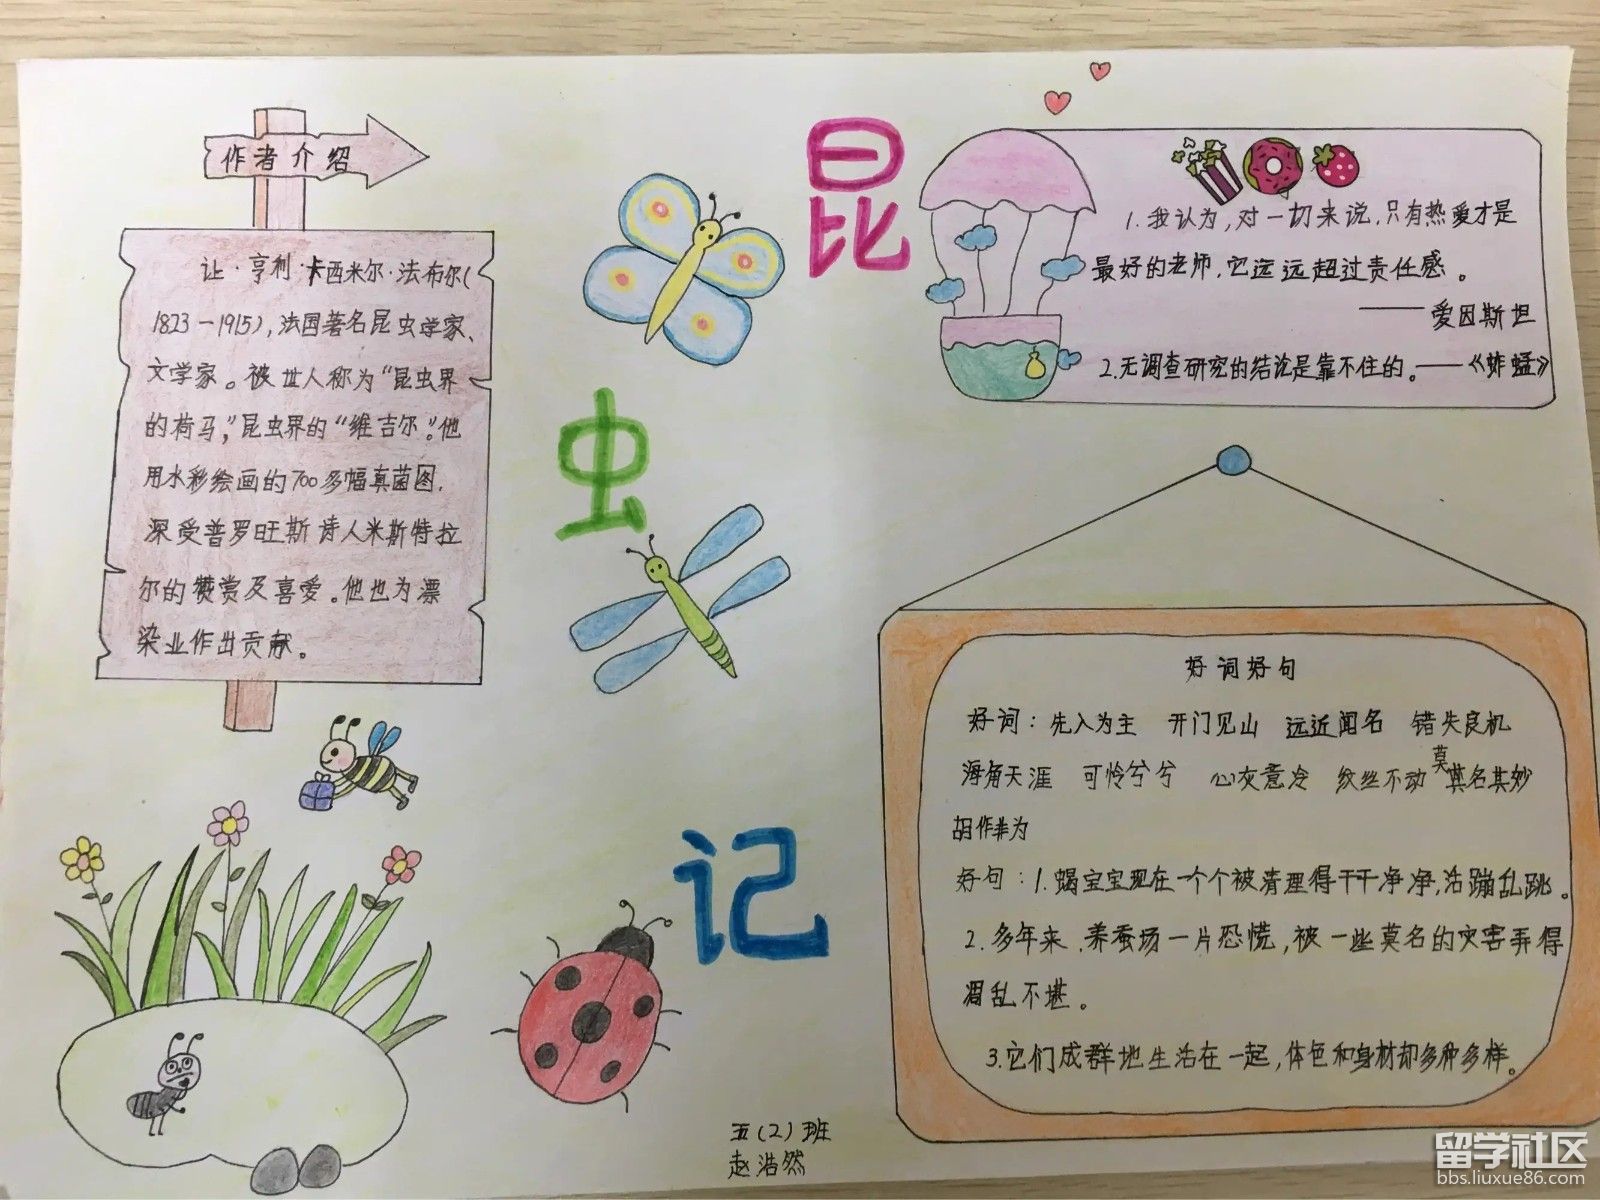 昆
虫
记
作者介绍
让·亨利·卡西米尔·法布尔(
1823-1915),法国著名昆虫学家、
文学家。被世人称为“昆虫界
的荷马,”昆虫界的“维吉尔”。他
用水彩绘画的700多幅真菌图.
深受普罗旺斯诗人米斯特拉
尔的赞赏及喜爱。他也为漂
染业作出贡献。
1.我认为,对一切来说,只有热爱才是
最好的老师,它远远超过责任感。
——爱因斯坦
2.无调查研究的结论是靠不住的。——《蚱蜢》
好词好句
好词：先入为主 开门见山 远近闻名 错失良机
海角天涯 可怜兮兮 心灰意冷 纹丝不动 莫名其妙
胡作非为
好句：1.蝎宝宝现在一个个被清理得干干净净,活蹦乱跳。
2.多年来,养蚕场一片恐慌,被一些莫名的灾害弄得
凋乱不堪。
3.它们成群地生活在一起,体色和身材却多种多样。
五(2)班
赵浩然
留学社区
bbs.liuxue86.com